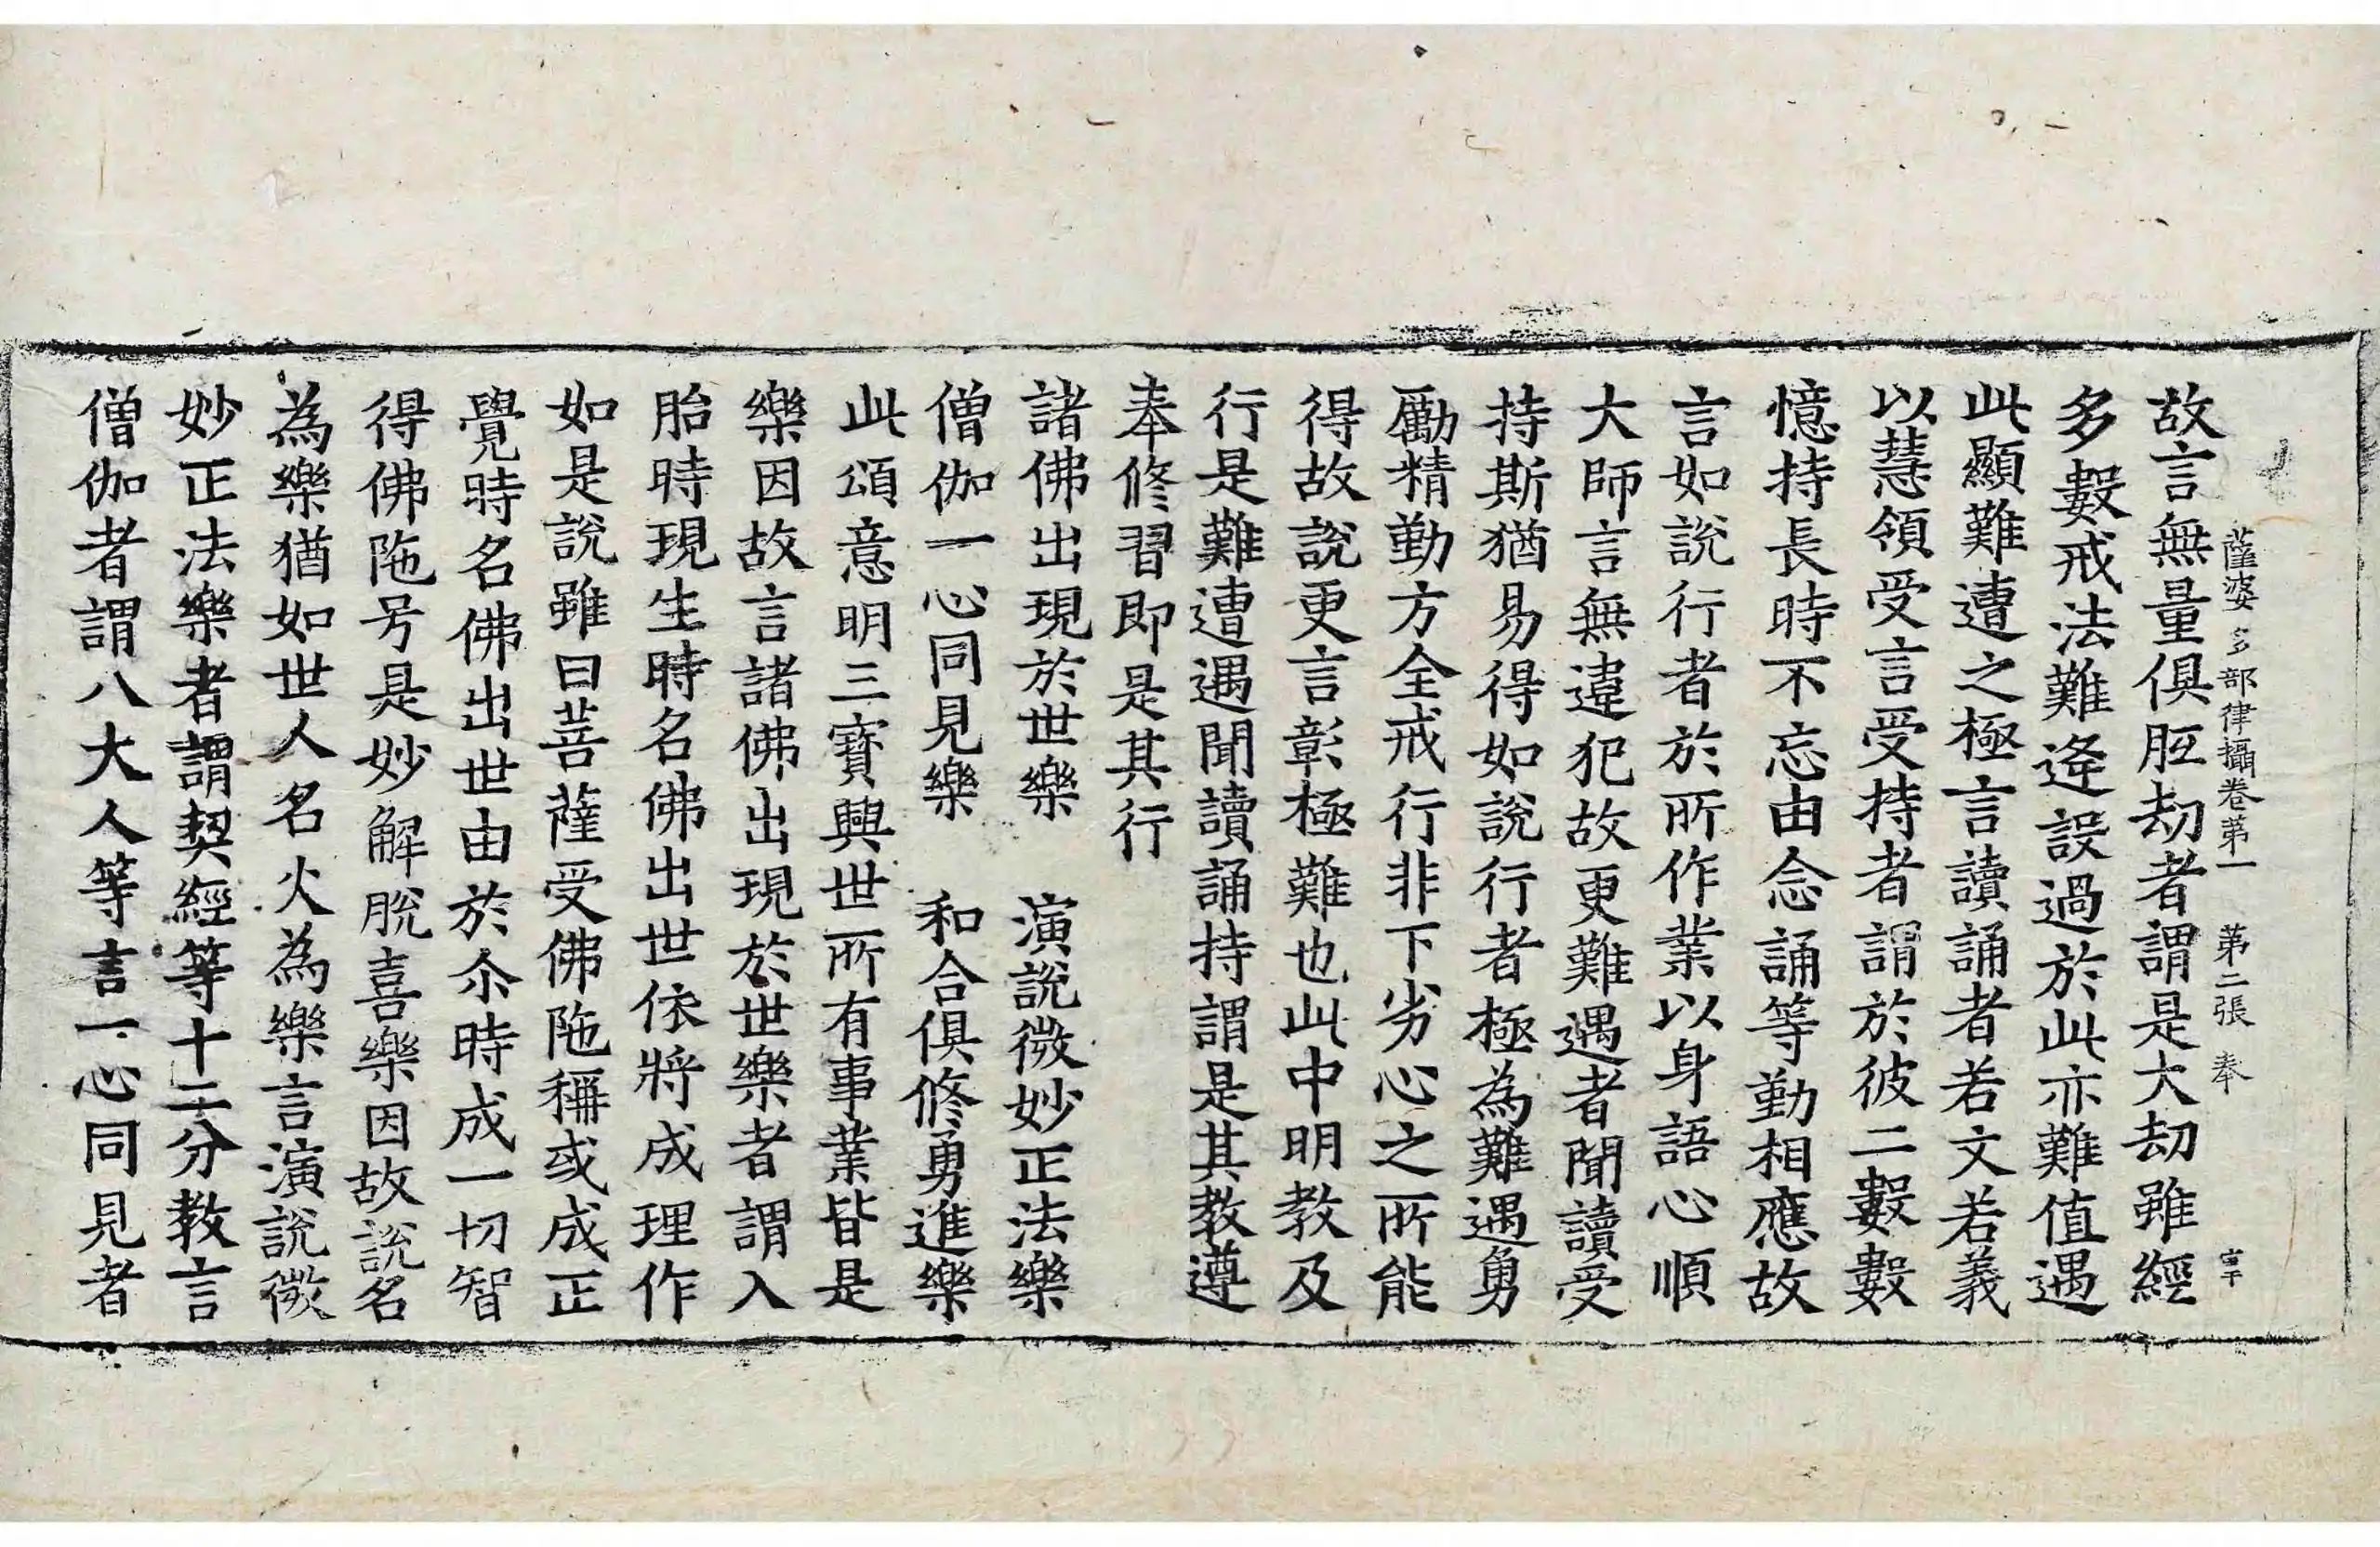 薩婆多部律攝卷第一 第二張 奉
故言無量俱胝劫者謂是大劫雖經
多數戒法難逢設過於此亦難值遇
此顯難遭之極言讀誦者若文若義
以慧領受言受持者謂於彼二數數
憶持長時不忘由念誦等勤相應故
言如說行者於所作業以身語心順
大師言無違犯故更難遇者聞讀受
持斯猶易得如說行者極為難遇勇
勵精勤方全戒行非下劣心之所能
得故說更言彰極難也此中明教及
行是難遭遇聞讀誦持謂是其教遵
奉修習即是其行
諸佛出現於世樂 演說微妙正法樂
僧伽一心同見樂 和合俱修勇進樂
此頌意明三寶興世所有事業皆是
樂因故言諸佛出現於世樂者謂入
胎時現生時名佛出世依將成理作
如是說雖曰菩薩受佛陁稱或成正
覺時名佛出世由於尒時成一切智
得佛陁号是妙解脫喜樂因故說名
為樂猶如世人名火為樂言演說微
妙正法樂者謂契經等十二分教言
僧伽者謂八大人等言一心同見者